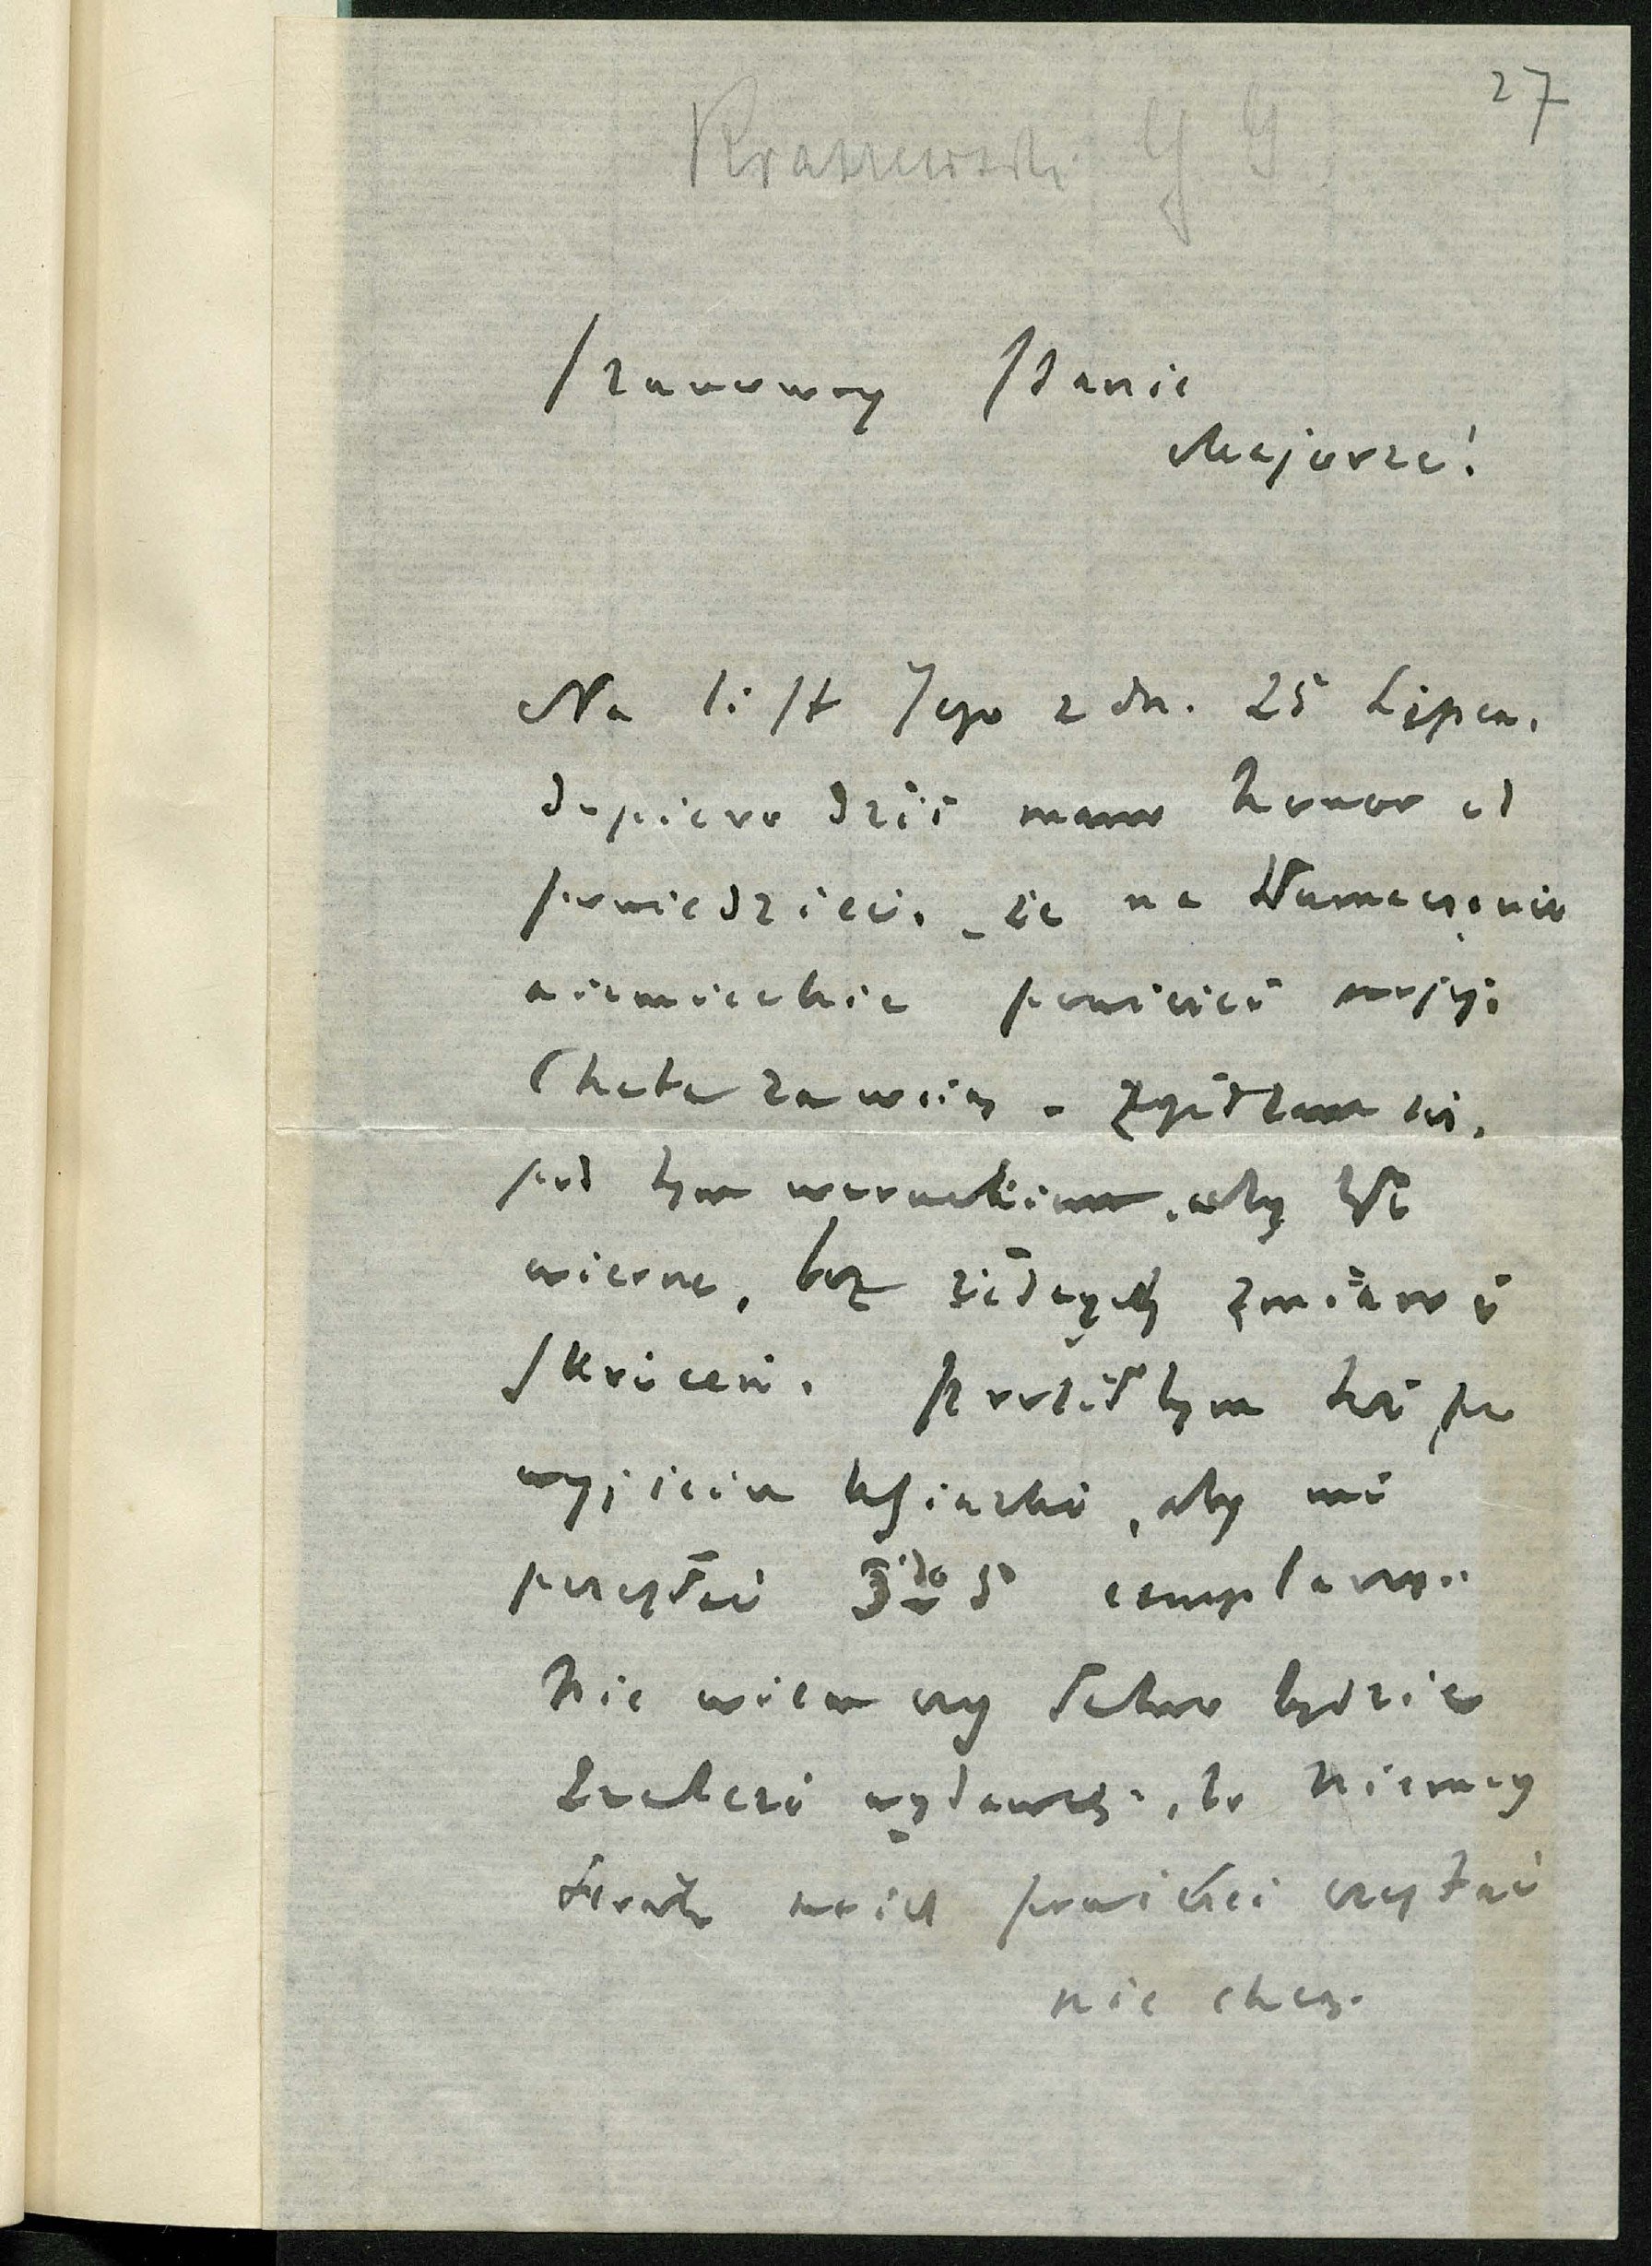 27
Kraszewski J J
Szanowny Panie
Majorze!
Na list Jego z dn. 25 Lipca.
dopiero dziś mam honor od
powiedzieć, że na tłumaczenie
niemieckie powieści mojej
Chata za wsią - zgadzam się.
pod tym warunkiem, aby było
wierne, bez żadnych zmian i
skróceń. Prosiłbym też po
wyjściu książki, aby mi
przysłać 3 do 5 exemplarzy.
Nie wiem czy łatwo będzie
znaleźć wydawcę, bo Niemcy
teraz moich powieści czytać
nie chcą.